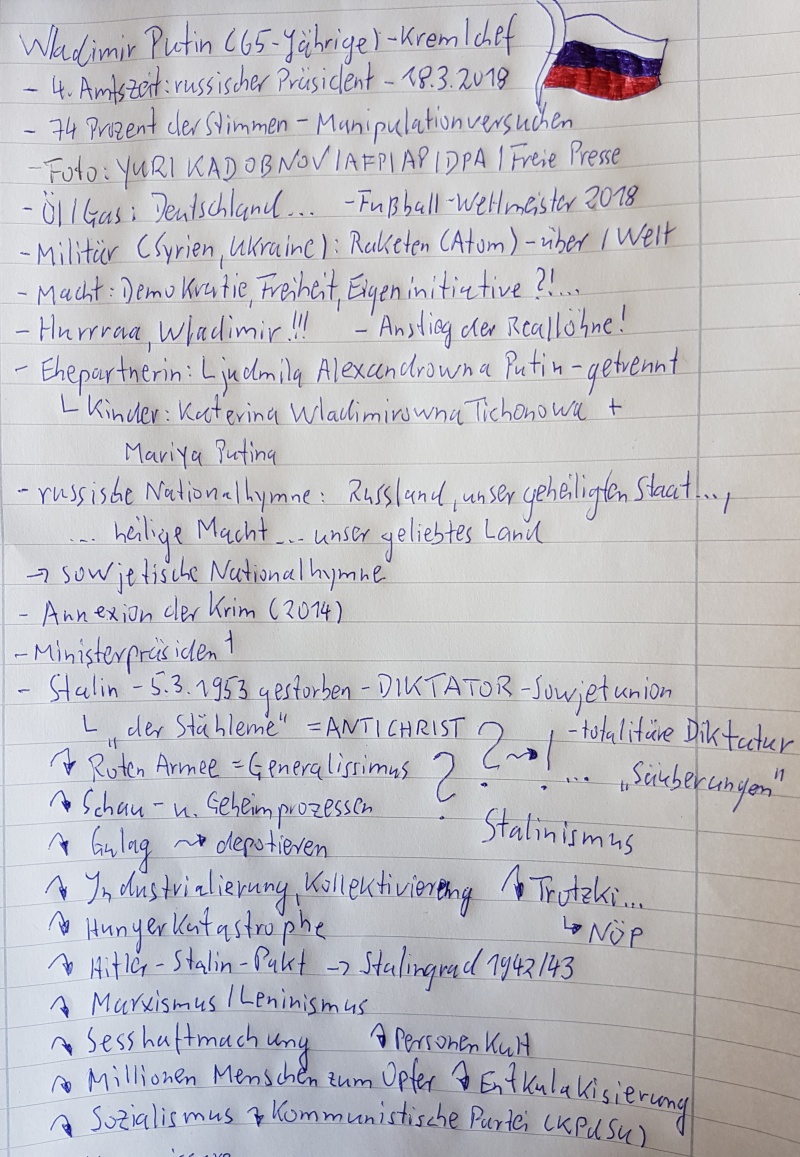 Wladimir Putin (65-Jährige) - Kremlchef
- 4. Amtszeit: russischer Präsident - 18.3.2018
- 74 Prozent der Stimmen - Manipulationversuchen
- Foto: YURI KADOBNOV/AFP/AP/DPA/Freie Presse
- Öl/Gas: Deutschland... - Fußball-Weltmeister 2018
- Militär (Syrien, Ukraine): Raketen (Atom) - über / Welt
- Macht: Demokratie, Freiheit, Eigeninitiative ?!...
- Hurrraa, Wladimir!!! - Anstieg der Reallöhne!
- Ehepartnerin: Ljudmila Alexandrowna Putin - getrennt
Kinder: Katerina Wladimirowna Tichonowa +
Mariya Putina
- russische Nationalhymne: Russland, unser geheiligten Staat...,
... heilige Macht ... unser geliebtes Land
→ sowjetische Nationalhymne
- Annexion der Krim (2014)
- Ministerpräsident
- Stalin - 5.3.1953 gestorben - DIKTATOR - Sowjetunion
„der Stähleme" = ANTICHRIST ? → ! - totalitäre Diktatur
Roten Armee = Generalissimus ? ... „Säuberungen"
Schau- u. Geheimprozessen
Stalinismus
Gulag → depotieren
Industrialierung, Kollektivierung Trotzki...
Hungerkatastrophe → NÖP
Hitler-Stalin-Pakt → Stalingrad 1942/43
Marxismus/Leninismus
Sesshaftmachung Personenkult
Millionen Menschen zum Opfer Entkulakisierung
Sozialismus Kommunistische Partei (KPdSU)